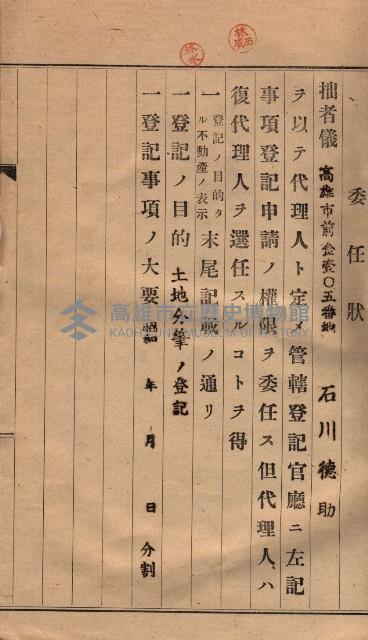 委任狀
拙者儀 高雄市前金壹〇五番地 石川德助
ヲ以テ代理人ト定メ管轄登記官廳ニ左記
事項登記申請ノ權限ヲ委任ス但代理人ハ
復代理人ヲ選任スルコトヲ得
一 登記ノ目的タル不動產ノ表示 末尾記載ノ通リ
一登記ノ目的 土地分筆ノ登記
一登記事項ノ大要 昭 年 月 日 分割
高雄市立歷史博物館
KAOHSIUNG MUSEUM OF HISTORY